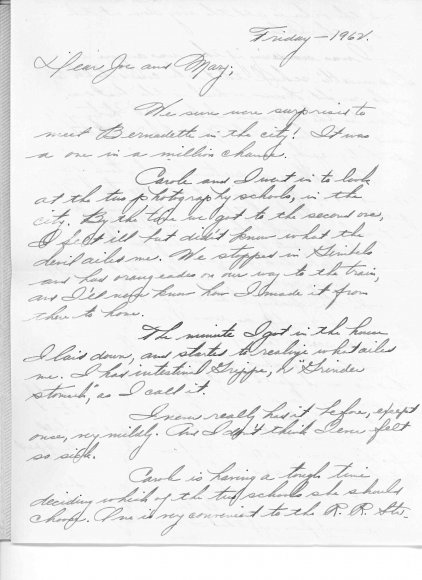 Friday - 1962.
Dear Joe and Mary;
We sure were surprised to
meet Bernadette in the city! It was
a one in a million chance.
Carole and I went in to look
at the two photography schools, in the
city. By the time we got to the second one,
I felt ill but didn't know what the
devil ailed me. We stopped in Gimbels
and had orangeades on our way to the train,
and I'll never know how I made it from
there to home.
The minute I got in the house
I laid down, and started to realize what ailed
me. I had intestinal Grippe, or "Grinder
stomach," as I call it.
I never really had it before, except
once, very mildly. And I don't think I ever felt
so sick.
Carole is having a tough time
deciding which of the two schools she should
choose. One is very convenient to the R. R. Sta.